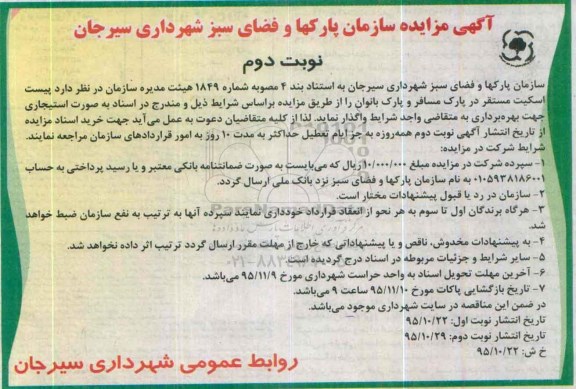 آگهی مزایده سازمان پارکها و فضای سبز شهرداری سیرجان
نوبت دوم
سازمان پارکها و فضای سبز شهرداری سیرجان به استناد بند ۴ مصوبه شماره ۱۸۴۹ هیئت مدیره سازمان در نظر دارد پیست
اسکیت مستقر در پارک مسافر و پارک بانوان را از طریق مزایده براساس شرایط ذیل و مندرج در اسناد به صورت استیجاری
جهت بهره‌برداری به متقاضی واجد شرایط واگذار نماید. لذا از کلیه متقاضیان دعوت به عمل می‌آید جهت خرید اسناد مزایده
از تاریخ انتشار آگهی نوبت دوم همه‌روزه به جز ایام تعطیل حداکثر به مدت ۱۰ روز به امور قراردادهای سازمان مراجعه نمایند.
شرایط شرکت در مزایده:
۱- سپرده شرکت در مزایده مبلغ ۱۰/۰۰۰/۰۰۰ریال که می‌بایست به صورت ضمانتنامه بانکی معتبر و یا رسید پرداختی به حساب
۰۱۰۵۹۳۸۱۸۶۰۰۱ به نام سازمان پارکها و فضای سبز نزد بانک ملی ارسال گردد.
۲- سازمان در رد یا قبول پیشنهادات مختار است.
۳- هرگاه برندگان اول تا سوم به هر نحو از انعقاد قرارداد خودداری نمایند سپرده آنها به ترتیب به نفع سازمان ضبط خواهد
شد.
۴- به پیشنهادات مخدوش، ناقص و یا پیشنهاداتی که خارج از مهلت مقرر ارسال گردد ترتیب اثر داده نخواهد شد.
۵- سایر شرایط و جزئیات مربوطه در اسناد درج گردیده است.
۶- آخرین مهلت تحویل اسناد به واحد حراست شهرداری مورخ ۹۵/۱۱/۹ می‌باشد.
۷- تاریخ بازگشایی پاکات مورخ ۹۵/۱۱/۱۰ ساعت ۹ می‌باشد.
در ضمن این مناقصه در سایت شهرداری موجود می‌باشد.
تاریخ انتشار نوبت اول: ۹۵/۱۰/۲۲
تاریخ انتشار نوبت دوم: ۹۵/۱۰/۲۹
خ ش: ۹۵/۱۰/۲۲
روابط عمومی شهرداری سیرجان